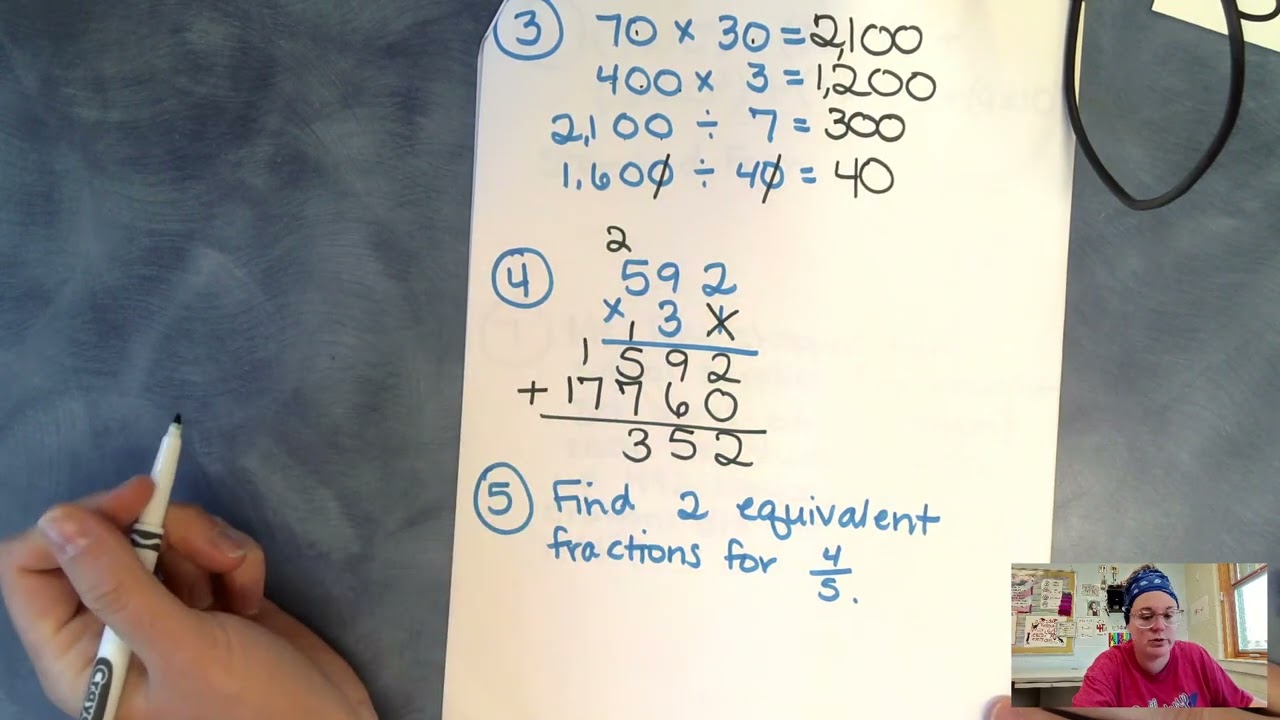 3 70 x 30 = 2,100
400 x 3 = 1,200
2,100 ÷ 7 = 300
1,600 ÷ 40 = 40
2
4 592
x 3
1 1
592
+ 17760
352
5 Find 2 equivalent
fractions for 4/5.
Crayo